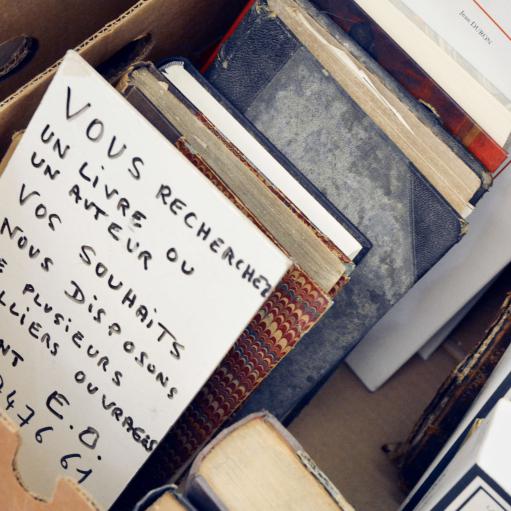 VOUS RECHERCHEZ
UN LIVRE OU
UN AUTEUR
VOS SOUHAITS
NOUS DISPOSONS
PLUSIEURS
OUVRAGES
E.O.
0476 61
Jean DUBON